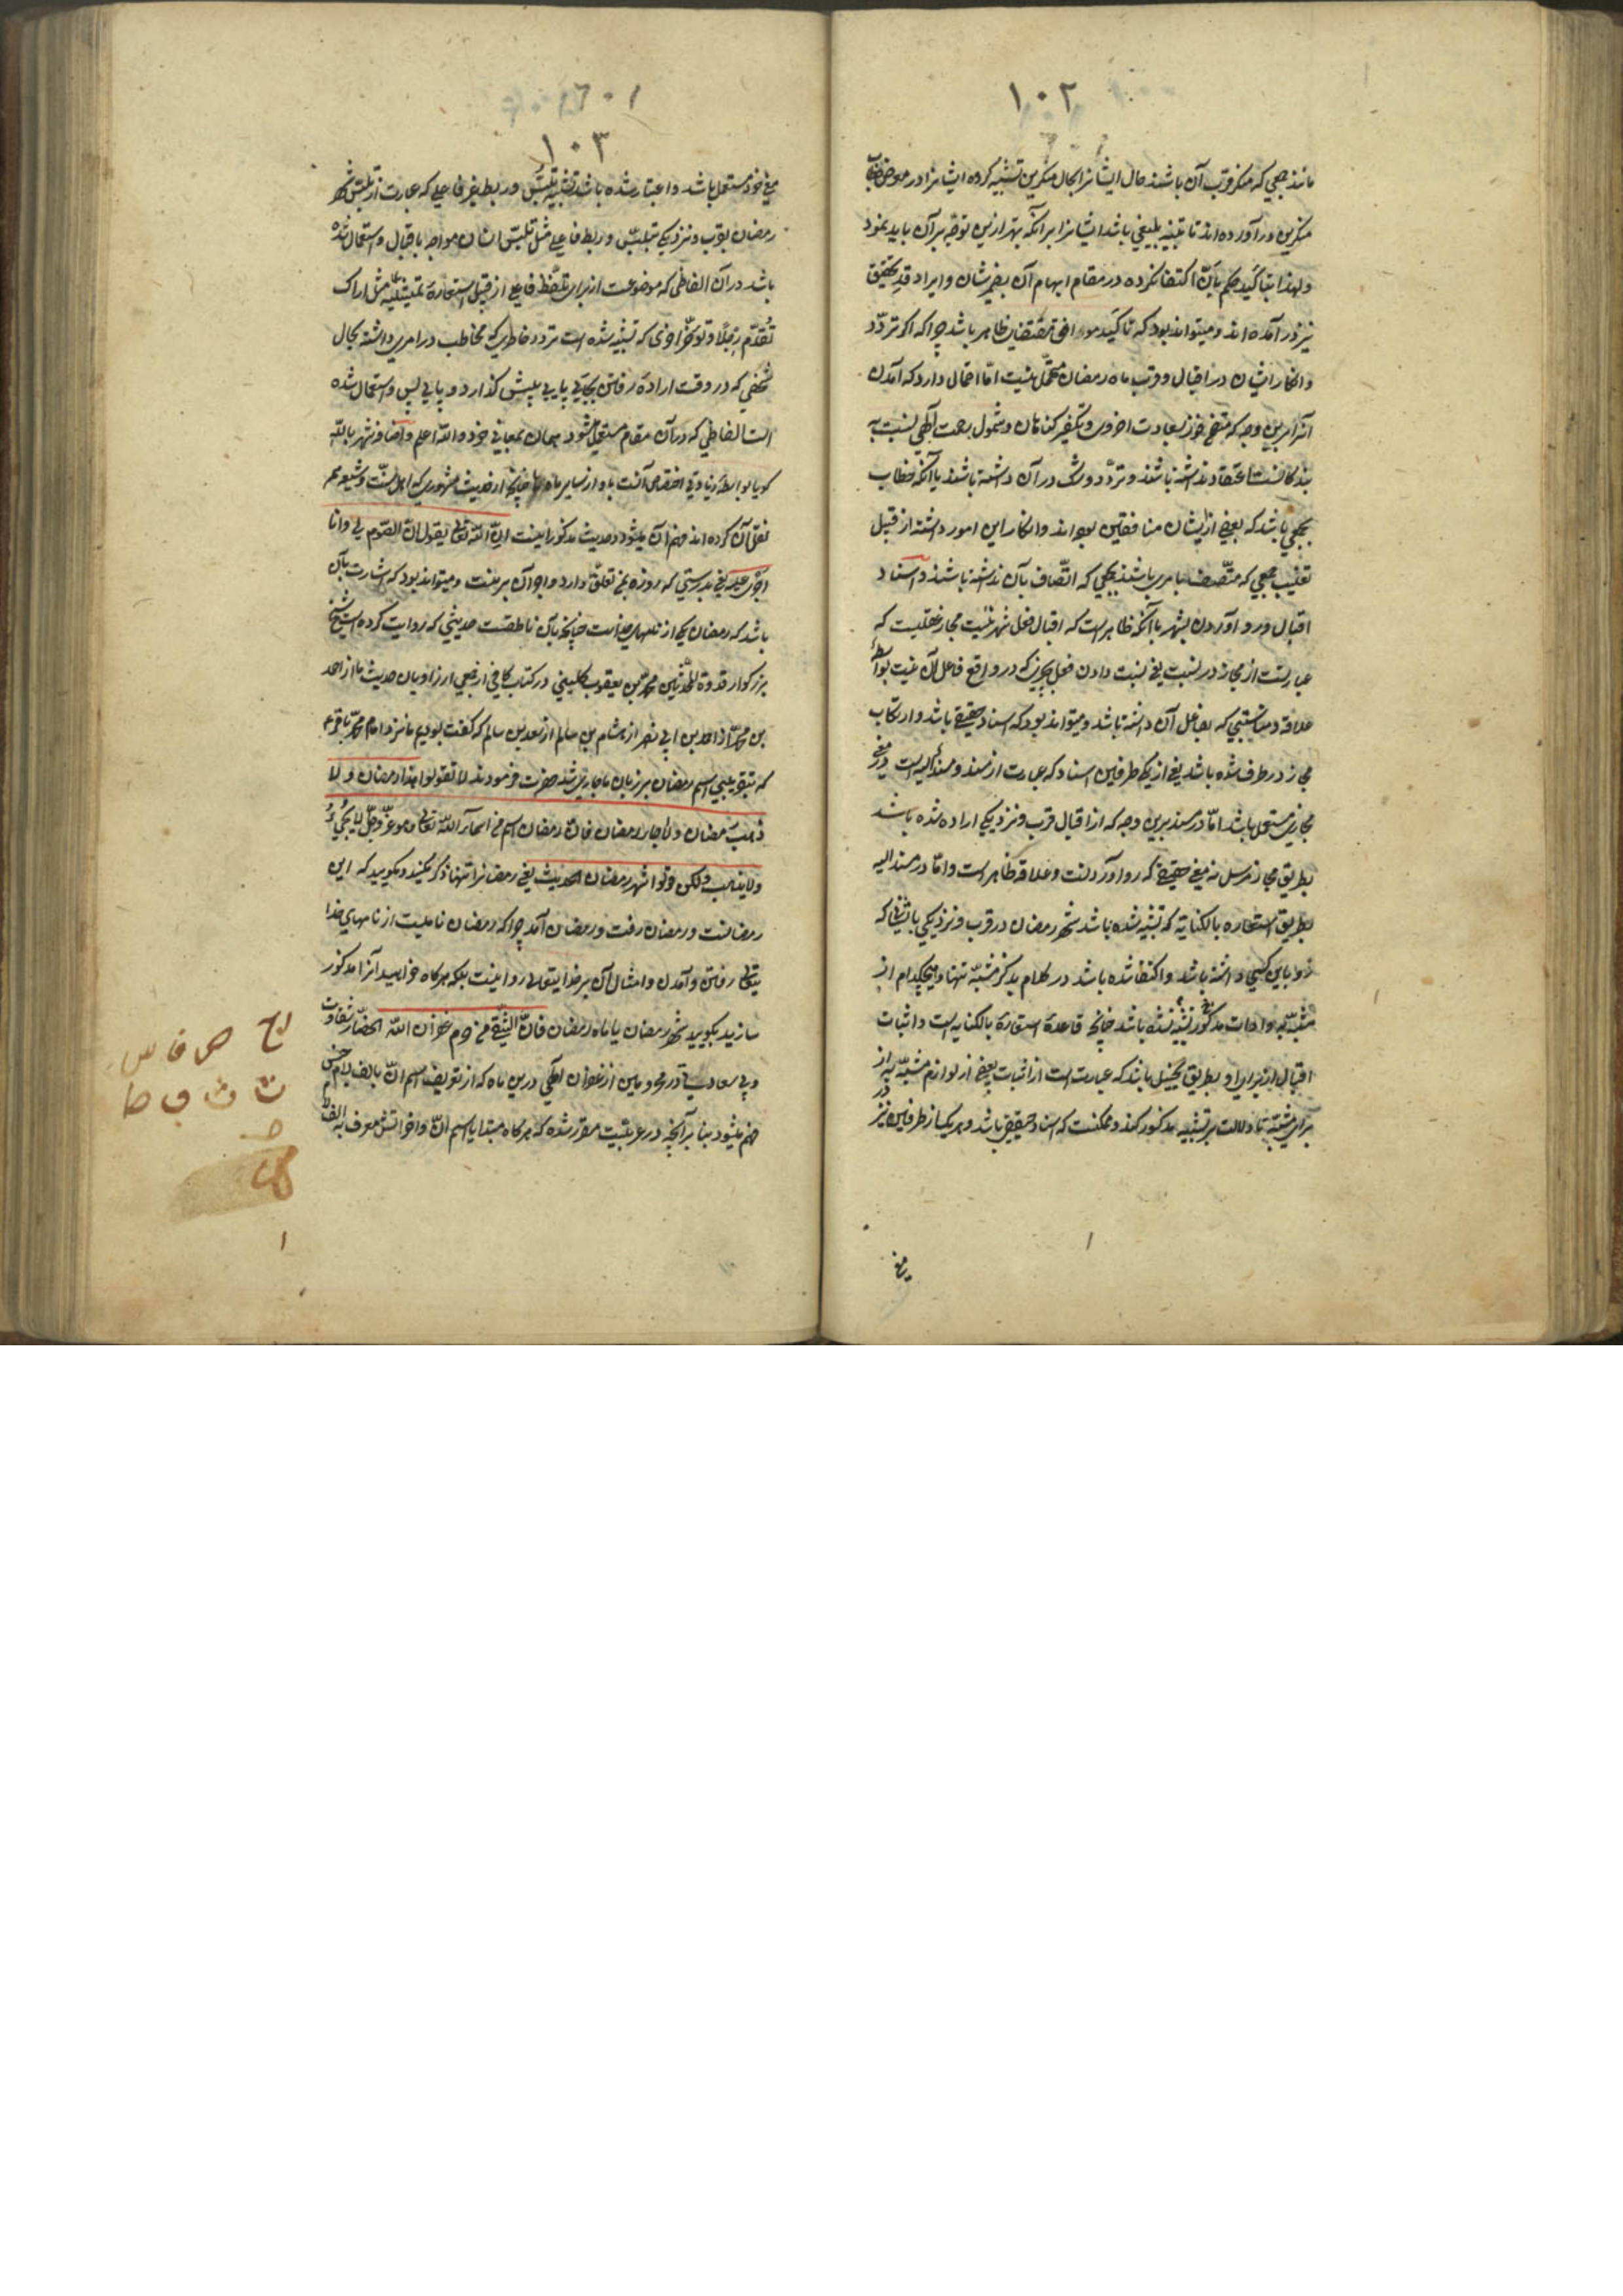 ۱۰۲
مانند جمعی که منکر قرب آن باشند حال ایشانرا بحال منکرین تشبیه کرده ایشانرا در معرض خطاب
منکرین در آورده اند تا تنبیه بلیغی باشد ایشانرا بر آنکه بهتر ازین توجه بر آن باید نمود
ولهذا بتأکید حکم بانّ اکتفا نکرده در مقام ابهام آن بضمیر شان و ایراد قد تحقیق
نیز در آمده اند و میتواند بود که تأکید موافق مقتضای ظاهر باشد چرا که اگر تردّد
و انکار ایشان در اقبال و قرب ماه رمضان محتمل نیست امّا احتمال دارد که آمدن
آنرا برین وجه که منتج فوز بسعادت اخروی و تکفیر گناهان و شمول رحمت الهی نسبت به
بندگانست اعتقاد نداشته باشند و تردّد و شک در آن داشته باشند یا آنکه خطاب
بجمعی باشد که بعضی از ایشان منافقین بوده اند و انکار این امور داشته از قبیل
تغلیب جمعی که متّصف بامری باشند بجمعی که اتّصاف بآن نداشته باشند و اسناد
اقبال و رو آوردن بشهر با آنکه ظاهر است که اقبال فعل شهر نیست مجاز عقلیست که
عبارتست از مجاز در نسبت یعنی نسبت دادن فعل بچیزی که در واقع فاعل آن نیست بواسطهٔ
علاقه و مناسبتی که بفاعل آن داشته باشد و میتواند بود که اسناد حقیقی باشد و ارتکاب
مجاز در طرف شده باشد یعنی از یکی طرفین اسناد که عبارت از مسند و مسند الیه است در معنی
مجازی مستعمل باشد امّا در مسند برین وجه که از اقبال قرب و نزدیکی اراده شده باشد
بطریق مجاز مرسل نه معنی حقیقی که رو آوردنست و علاقه ظاهر است و امّا در مسند الیه
بطریق استعاره بالکنایه که تشبیه شده باشد شهر رمضان در قرب و نزدیکی باشخاصی که
رو باین کسی داشته باشد و اکتفا شده باشد در کلام بذکر مشبّه تنها و هیچکدام از
مشبّه به و ادات مذکور نشده باشد چنانچه قاعدهٔ استعارهٔ بالکنایه است و اثبات
اقبال از برای او بطریق تخییل باشد که عبارت است از اثبات بعضی از لوازم مشبّه به از
برای مشبّه تا دلالت بر تشبیه مذکور کند و ممکنست که اسناد حقیقی باشد و هر یک از طرفین نیز در
۱
معنی
۱۰۳
معنی خود مستعمل باشد و اعتبار شده باشد تشبیه تلبّس و ربط غیر فاعلی که عبارت از تلبّس شهر
رمضان بقرب و نزدیکی بتلبّس و ربط فاعلی مثل تلبّس انسان مواجه باقبال و استعمال شده
باشد در آن الفاظی که موضوعست از برای تلفّظ فاعلی از قبیل استعارهٔ تمثیلیّه مثل اراک
تُقدّم رِجلاً و تُوخّر اُخری که تشبیه شده است تردد خاطری که مخاطب در امری داشته بحال
شخصی که در وقت ارادهٔ رفتن بجائی پایی پیش گذارد و پایی پس و استعمال شده
است الفاظی که در آن مقام مستعمل میشود بهمان معانی خود و اللّه اعلم و اضافه شهر باللّه
گویا بواسطهٔ زیادتی اختصاص آنست باو از سایر ماه ها چنانچه از حدیث مشهوری که اهل سنّت و شیعه هم
نقل آن کرده اند فهم آن میشود و حدیث مذکور اینست انّ اللّه تعالی یقول انّ الصّوم لی و انا
اجزی علیه یعنی بدرستی که روزه بمن تعلّق دارد و اجر آن بر منست و میتواند بود که اشارت بآن
باشد که رمضان یکی از نامهای خداست چنانچه بآن ناطقست حدیثی که روایت کرده است شیخ
بزرکوار قدوة المحدّثین محمّد بن یعقوب کلینی در کتاب کافی از جمعی از راویان حدیث ما از احمد
بن محمّد از احمد بن ابی نصر از هشام بن سالم از سعد بن سالم که گفت بودیم ما نزد امام محمّد باقر ع
که بتقریبی اسم رمضان بر زبان ما جاری شد حضرت فرمودند لا تقولوا هذا رمضان و لا
ذهب رمضان و لا جاء رمضان فانّ رمضان اسم من اسمآء اللّه تعالی و هو عزّ و جلّ لا یجیُ
و لا یذهب ولکن قولوا شهر رمضان الحدیث یعنی رمضانرا تنها ذکر مکنید و مگویید که این
رمضانست و رمضان رفت و رمضان آمد چرا که رمضان نامیست از نامهای خدا
یتعالی رفتن و آمدن و امثال آن بر خدایتعالی روا نیست بلکه هر گاه خواهید آنرا مذکور
سازید بگویید شهر رمضان یا ماه رمضان فانّ الشّقی من حُرم غفران اللّه الخصّار شقاوت
و بی سعادتی در محرومی از غفران الهی درین ماه که از تعریف اسم انّ بالف لام جنس
فهم میشود بنا بر آنچه در عربیّت مقرر شده که هر گاه مبتدا یا اسم انّ و اخواتش معرف به الف لام
۱